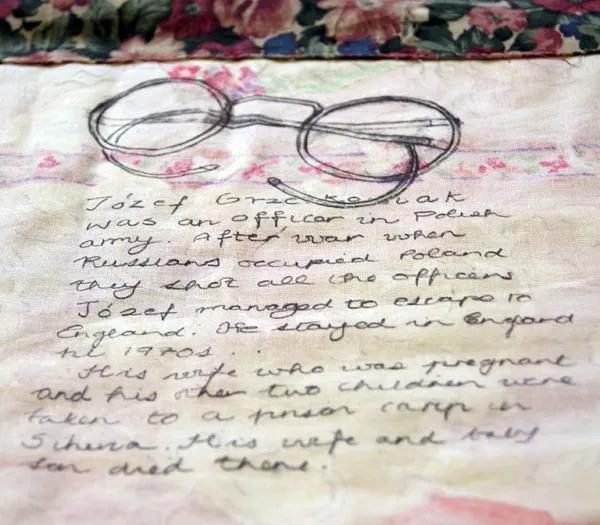 Józef
was an officer in Polish
army. After war when
Russians occupied Poland
they shot all the officers
Józef managed to escape to
England. He stayed in England
till 1970s...
His wife who was pregnant
and his other two children were
taken to a prison camp in
Siberia. His wife and baby
son died there.